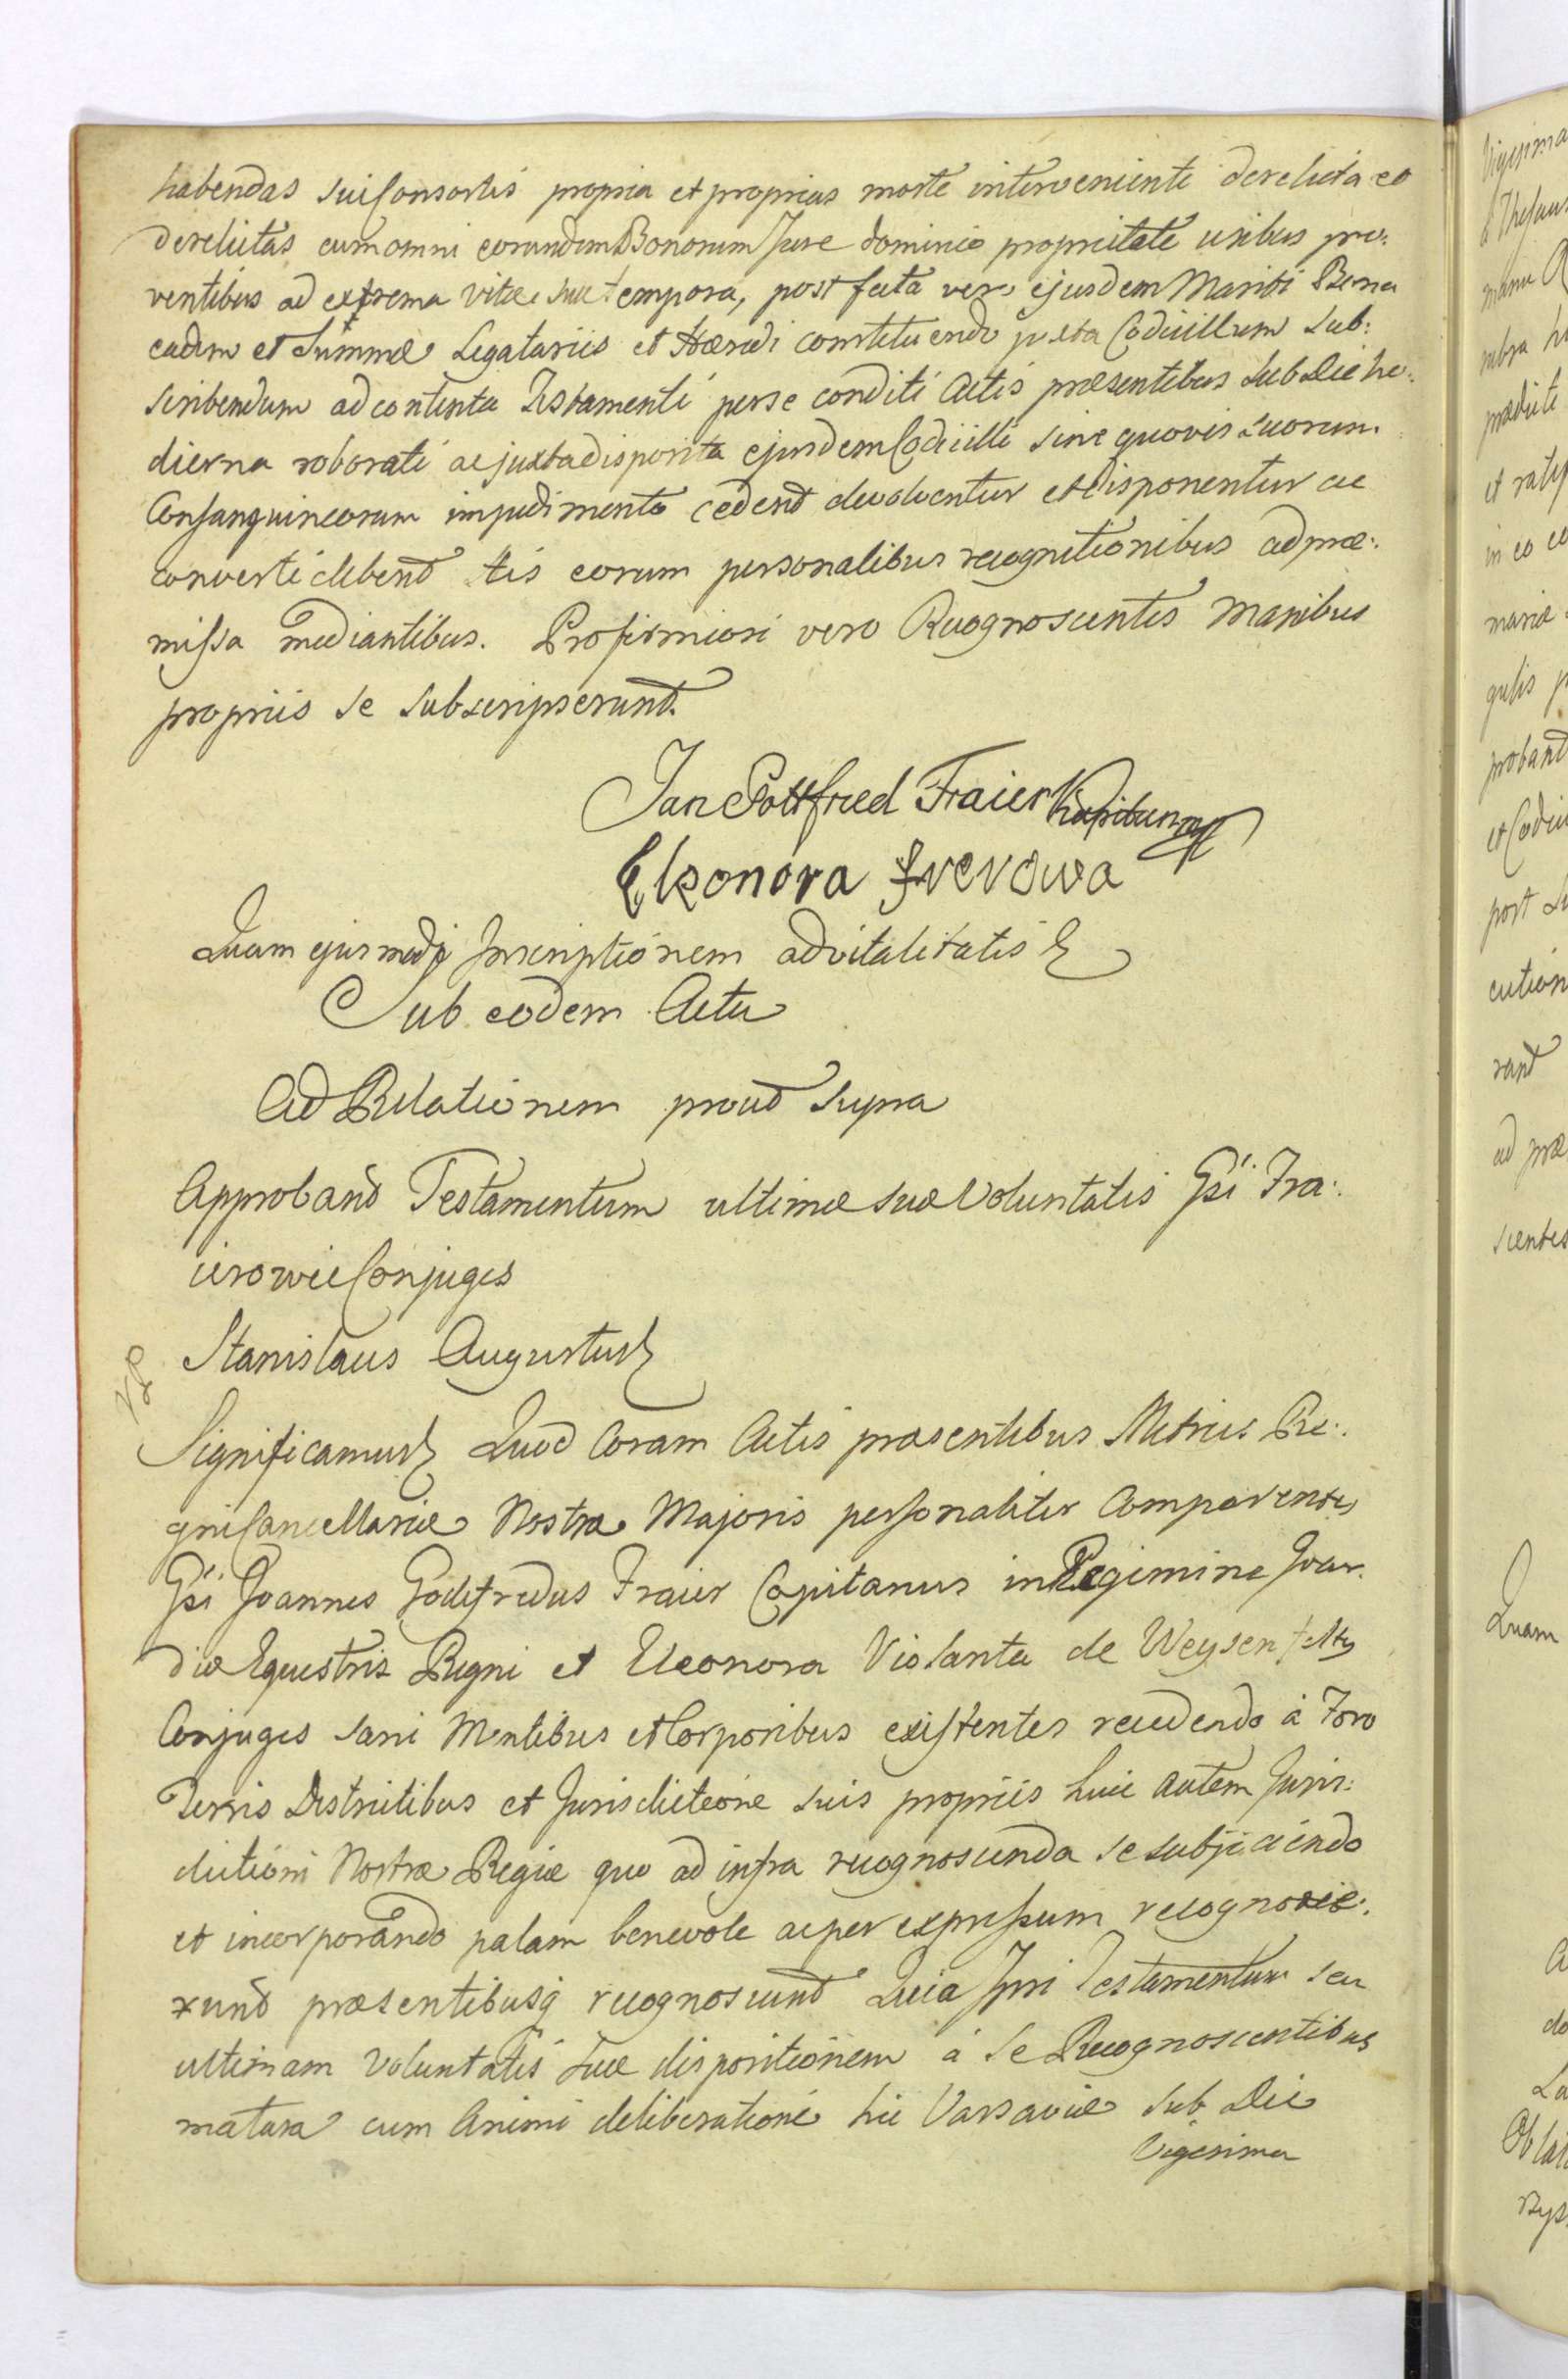 habendas sui Consortis propria et proprias morte interveniente derelicta et
derelictas cum omni eorundem Bonorum Jure dominio proprietate usibus pro:
ventibus ad extrema vitæ suæ tempora, post fata vero ejusdem Mariti Bona
eadem et Summæ Legatariis et Hæredi constituendo juxta Codicillum sub:
scribendum ad contenta Testamenti per se conditi Actis præsentibus sub Die ho:
dierna roborati ac juxta disposita ejusdem Codicilli sine quovis suorum
Consanguineorum impedimento cedent devolventur et disponentur ac
converti debent tis eorum personalibus recognitionibus ad præ:
missa mediantibus. Pro firmiori vero Recognoscentes Manibus
propriis se subscripserunt.
Jan Gottfried Fraier Kapitan mp
Eleonora Frerowa
Quam ejusmodi Inscriptionem advitalitatis
Sub eodem Actu
Ad Relationem prout supra
Approband Testamentum ultimæ suæ Voluntatis Gsi Fra:
ierowie Conjuges
Stanislaus Augustus
Significamus Quod Coram Actis præsentibus Metrices Re:
gni Cancellariæ Nostræ Majoris personaliter Comparentes
Gsi Joannes Godefredus Fraier Capitanus in Regimine Gvar:
diæ Equestris Regni et Eleonora Violanta de Weysenfelts
Conjuges sani Mentibus et Corporibus existentes recedendo à Foro
Terris Districtibus et Jurisdictione suis propriis huic autem Juris:
dictioni Nostræ Regiæ quo ad infra recognoscenda se subjiciendo
et incorporando palam benevole ac per expressum recognove:
runt præsentibusq recognoscunt Quia Ipsi Testamentum seu
ultimam Voluntatis suæ dispositionem à se Recognoscentibus
matura cum Animi deliberatione hic Varsaviæ sub Die
Vigesima